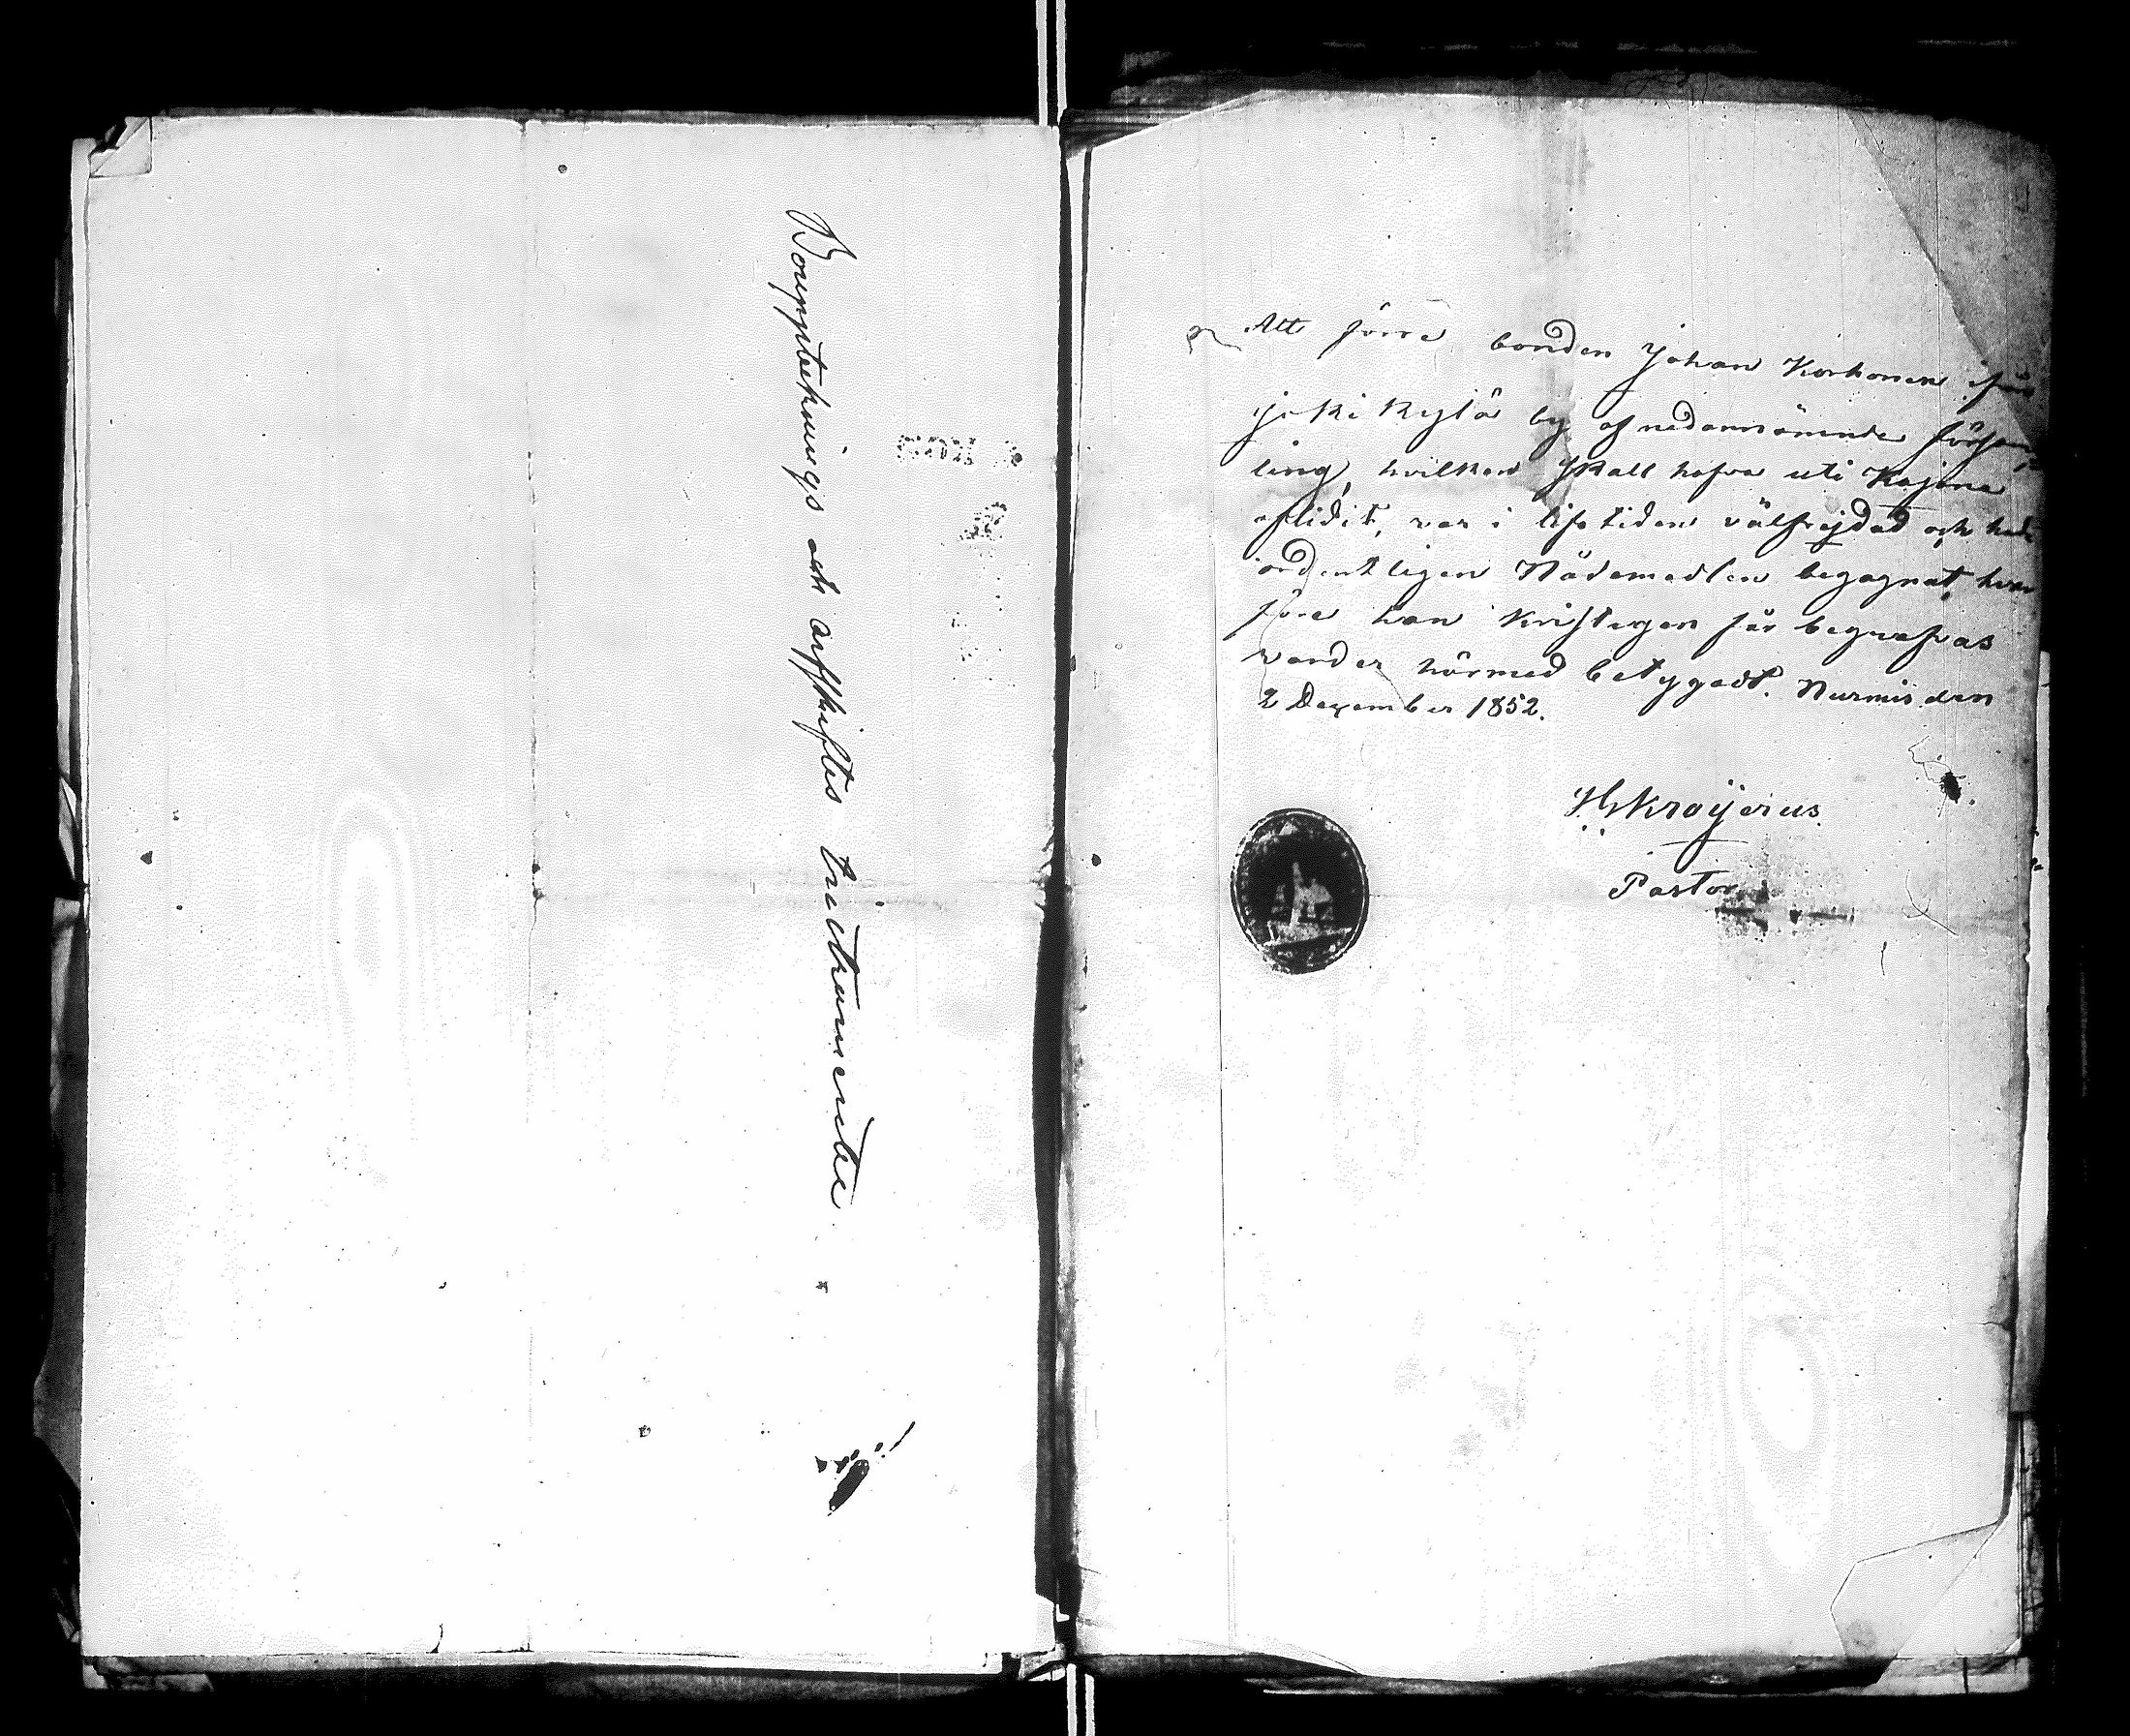 Bouppteknings och arfskiftes instrumente
Att förre bonden Johan Korhonen från
jokikylä by af nedannämnde försam=
ling, hvilken skall hafva uti Kajana
aflidit, var i lifstiden välfrejdad och had
ordentligen Nådemedlen begagnat, hvar
före han kristeligen får begrafvas
varder härmed betygadt. Nurmis den
2 December 1852.
HKroÿerus
Pastor